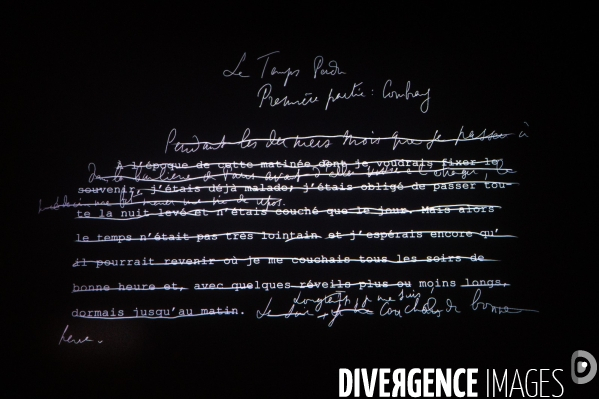 Le Temps Perdu
Première partie : Combray
Pendant les derniers mois que je passai à
À l'époque de cette matinée dont je voudrais fixer le
la banlieue de Paris avant d'aller
souvenir, j'étais déjà malade, j'étais obligé de passer tou-
te la nuit levé et n'étais couché que le jour. Mais alors
le temps n'était pas très lointain et j'espérais encore qu'
il pourrait revenir où je me couchais tous les soirs de
bonne heure et, avec quelques réveils plus ou moins longs,
Longtemps je me suis
dormais jusqu'au matin. couché de bonne
heure.
DIVERGENCE IMAGES